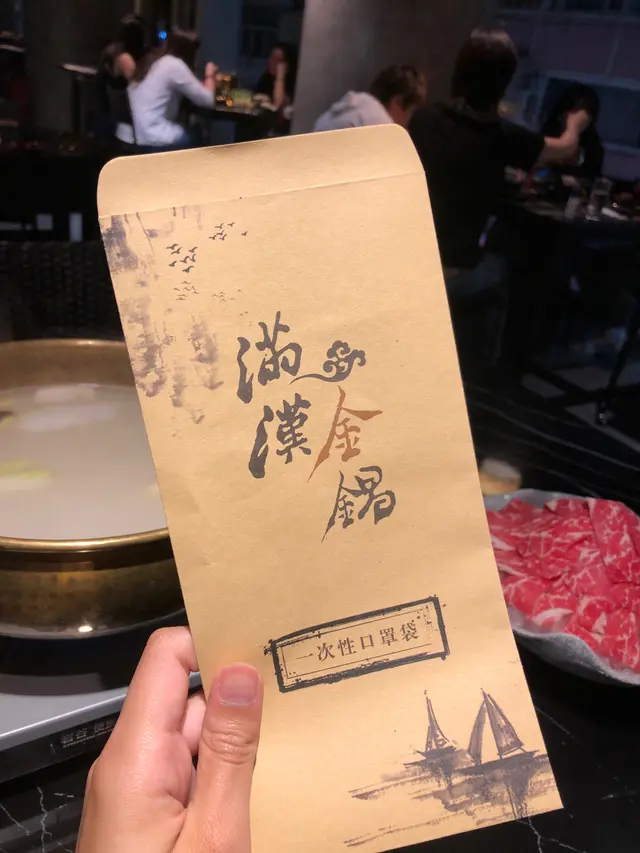 滿漢
金鍋
一次性口罩袋
岩谷